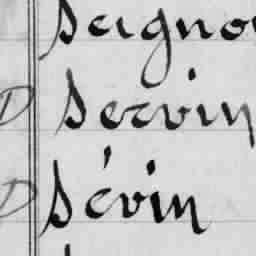 Seigno
D Servin
D Sévin